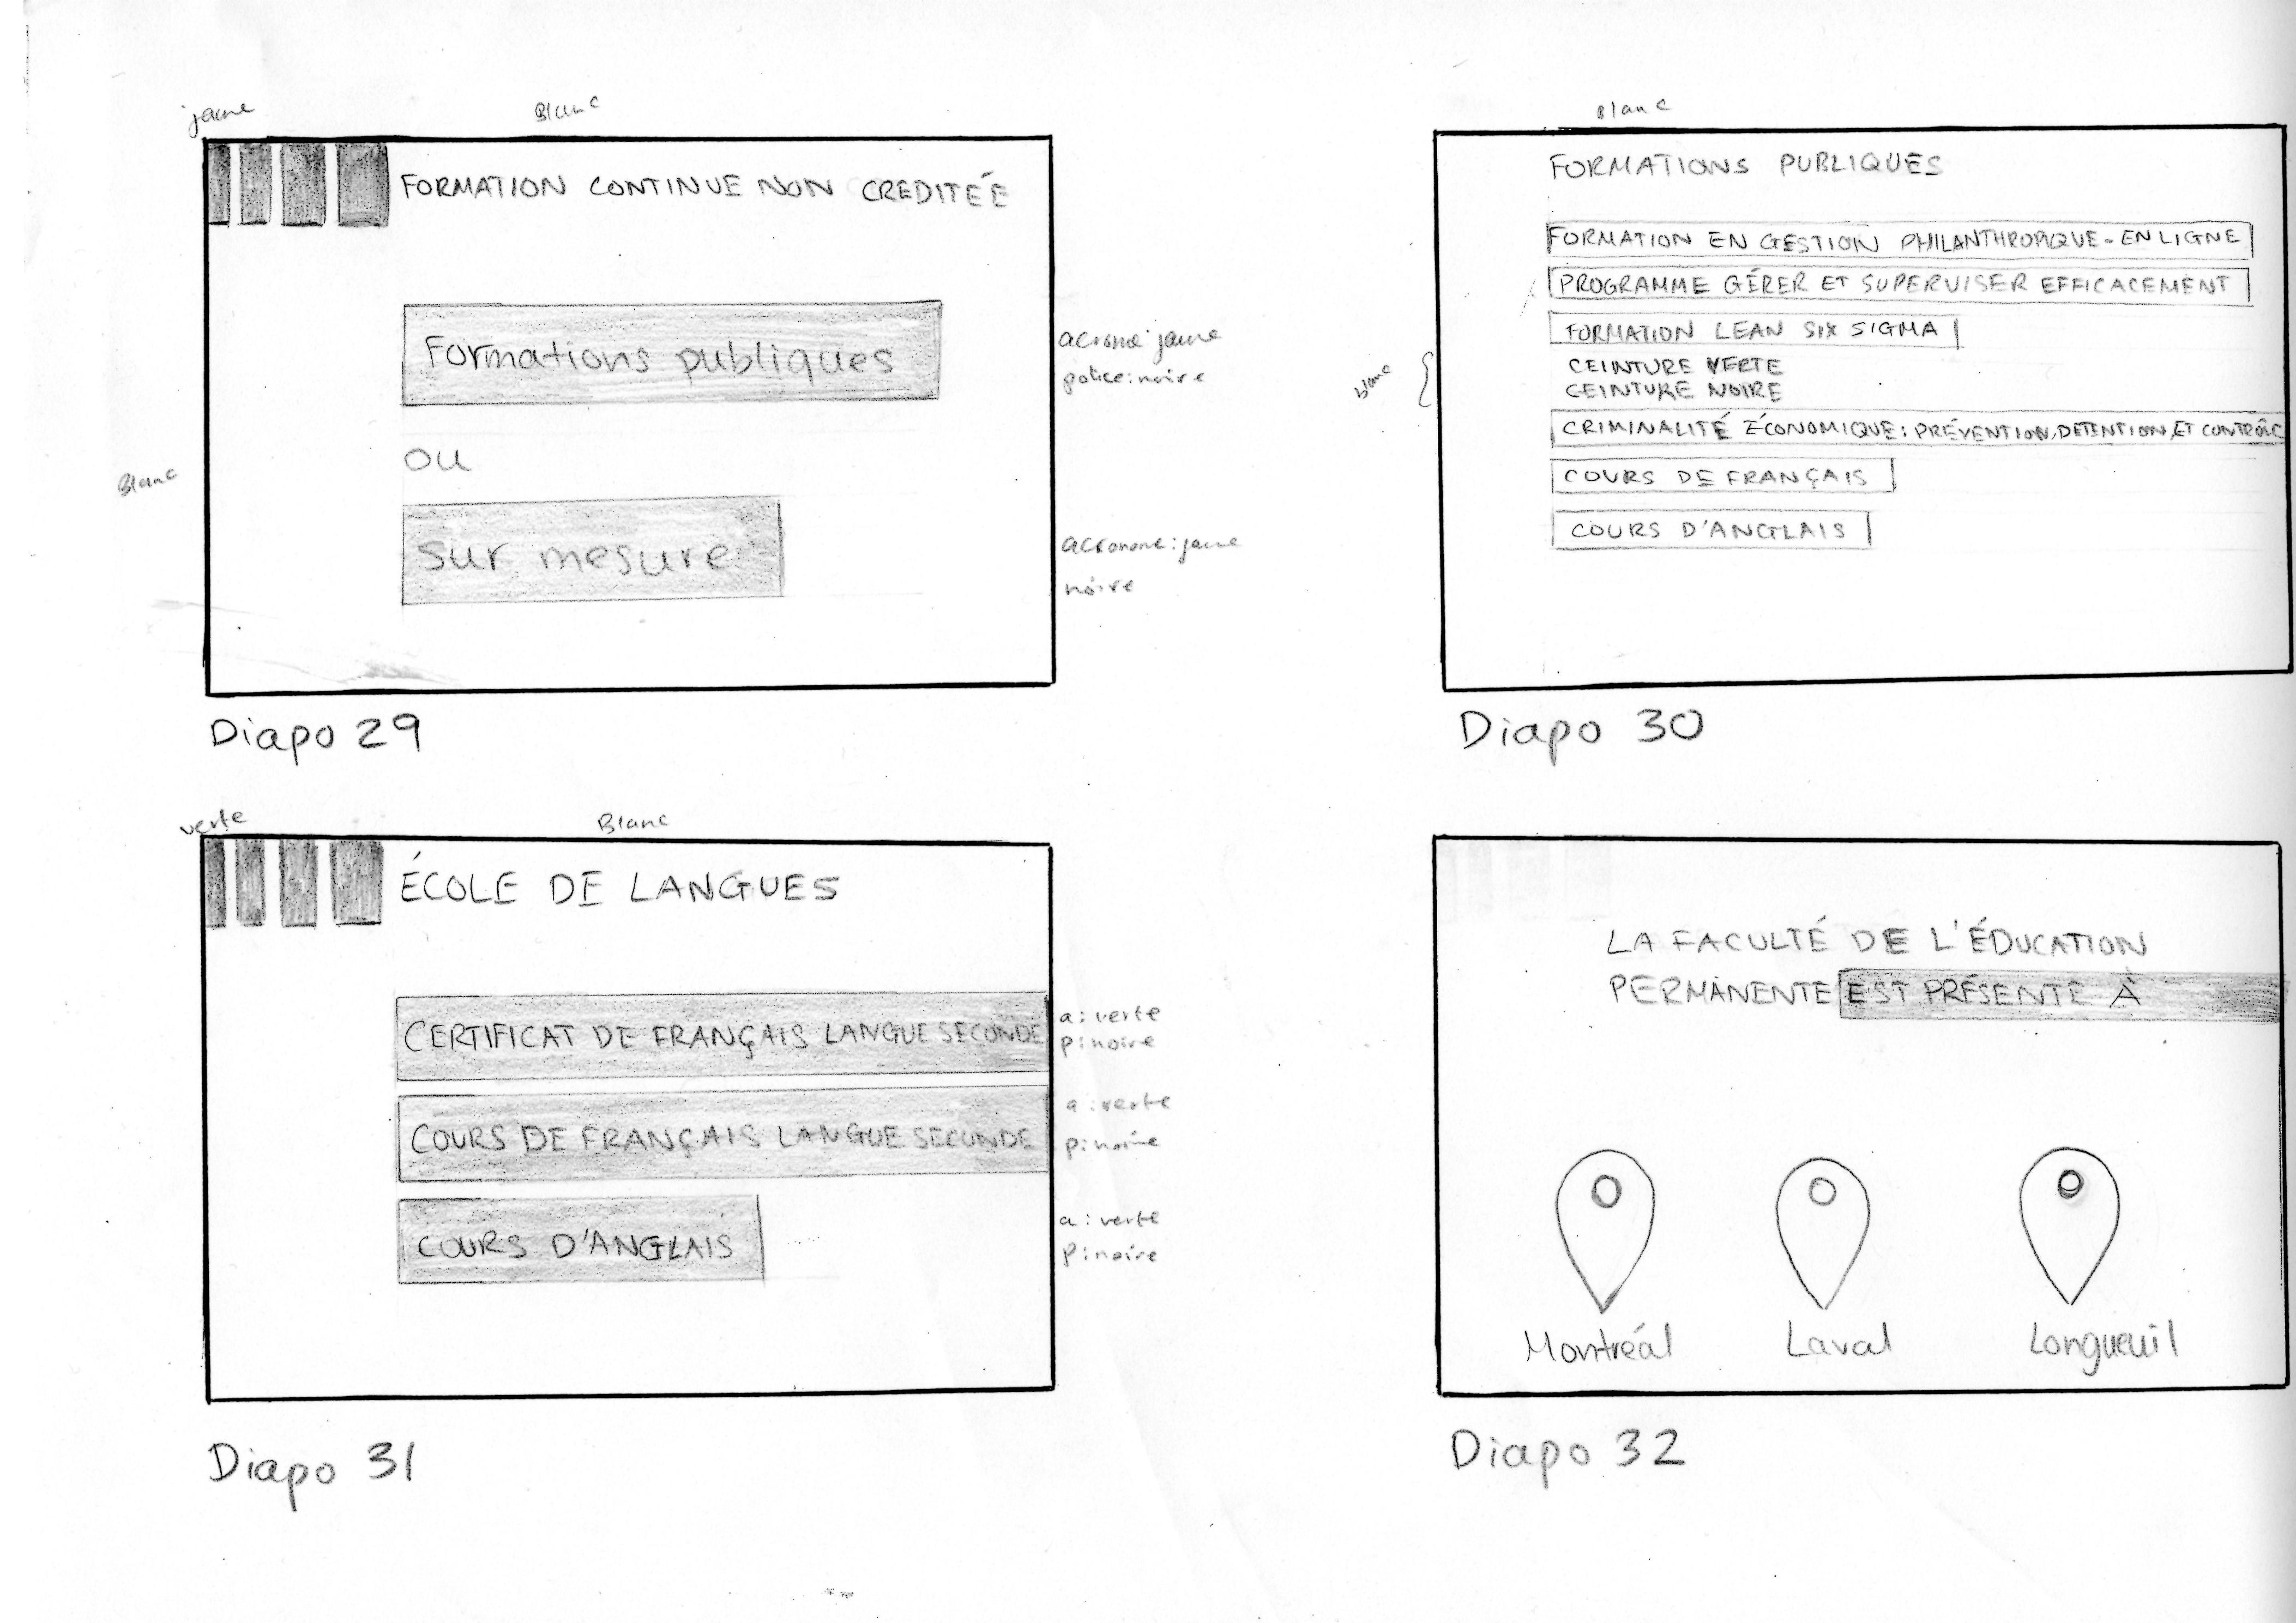 jaune
Blanc
FORMATION CONTINUE NON CREDITÉE
Formations publiques
jaune
police: noire
ou
Blanc
Sur mesure
jaune
noire
Diapo 29
Blanc
FORMATIONS PUBLIQUES
FORMATION EN GESTION PHILANTHROPIQUE - EN LIGNE
PROGRAMME GÉRER ET SUPERVISER EFFICACEMENT
FORMATION LEAN SIX SIGMA
CEINTURE VERTE
CEINTURE NOIRE
blanc
CRIMINALITÉ ÉCONOMIQUE: PRÉVENTION, DETENTION, ET CONTRÔLE
COURS DE FRANÇAIS
COURS D'ANGLAIS
Diapo 30
verte
Blanc
ÉCOLE DE LANGUES
CERTIFICAT DE FRANÇAIS LANGUE SECONDE
a: verte
p: noire
COURS DE FRANÇAIS LANGUE SECONDE
a: verte
p: noire
COURS D'ANGLAIS
a: verte
P: noire
Diapo 31
LA FACULTÉ DE L'ÉDUCATION
PERMANENTE EST PRÉSENTE À
Montréal
Laval
Longueuil
Diapo 32